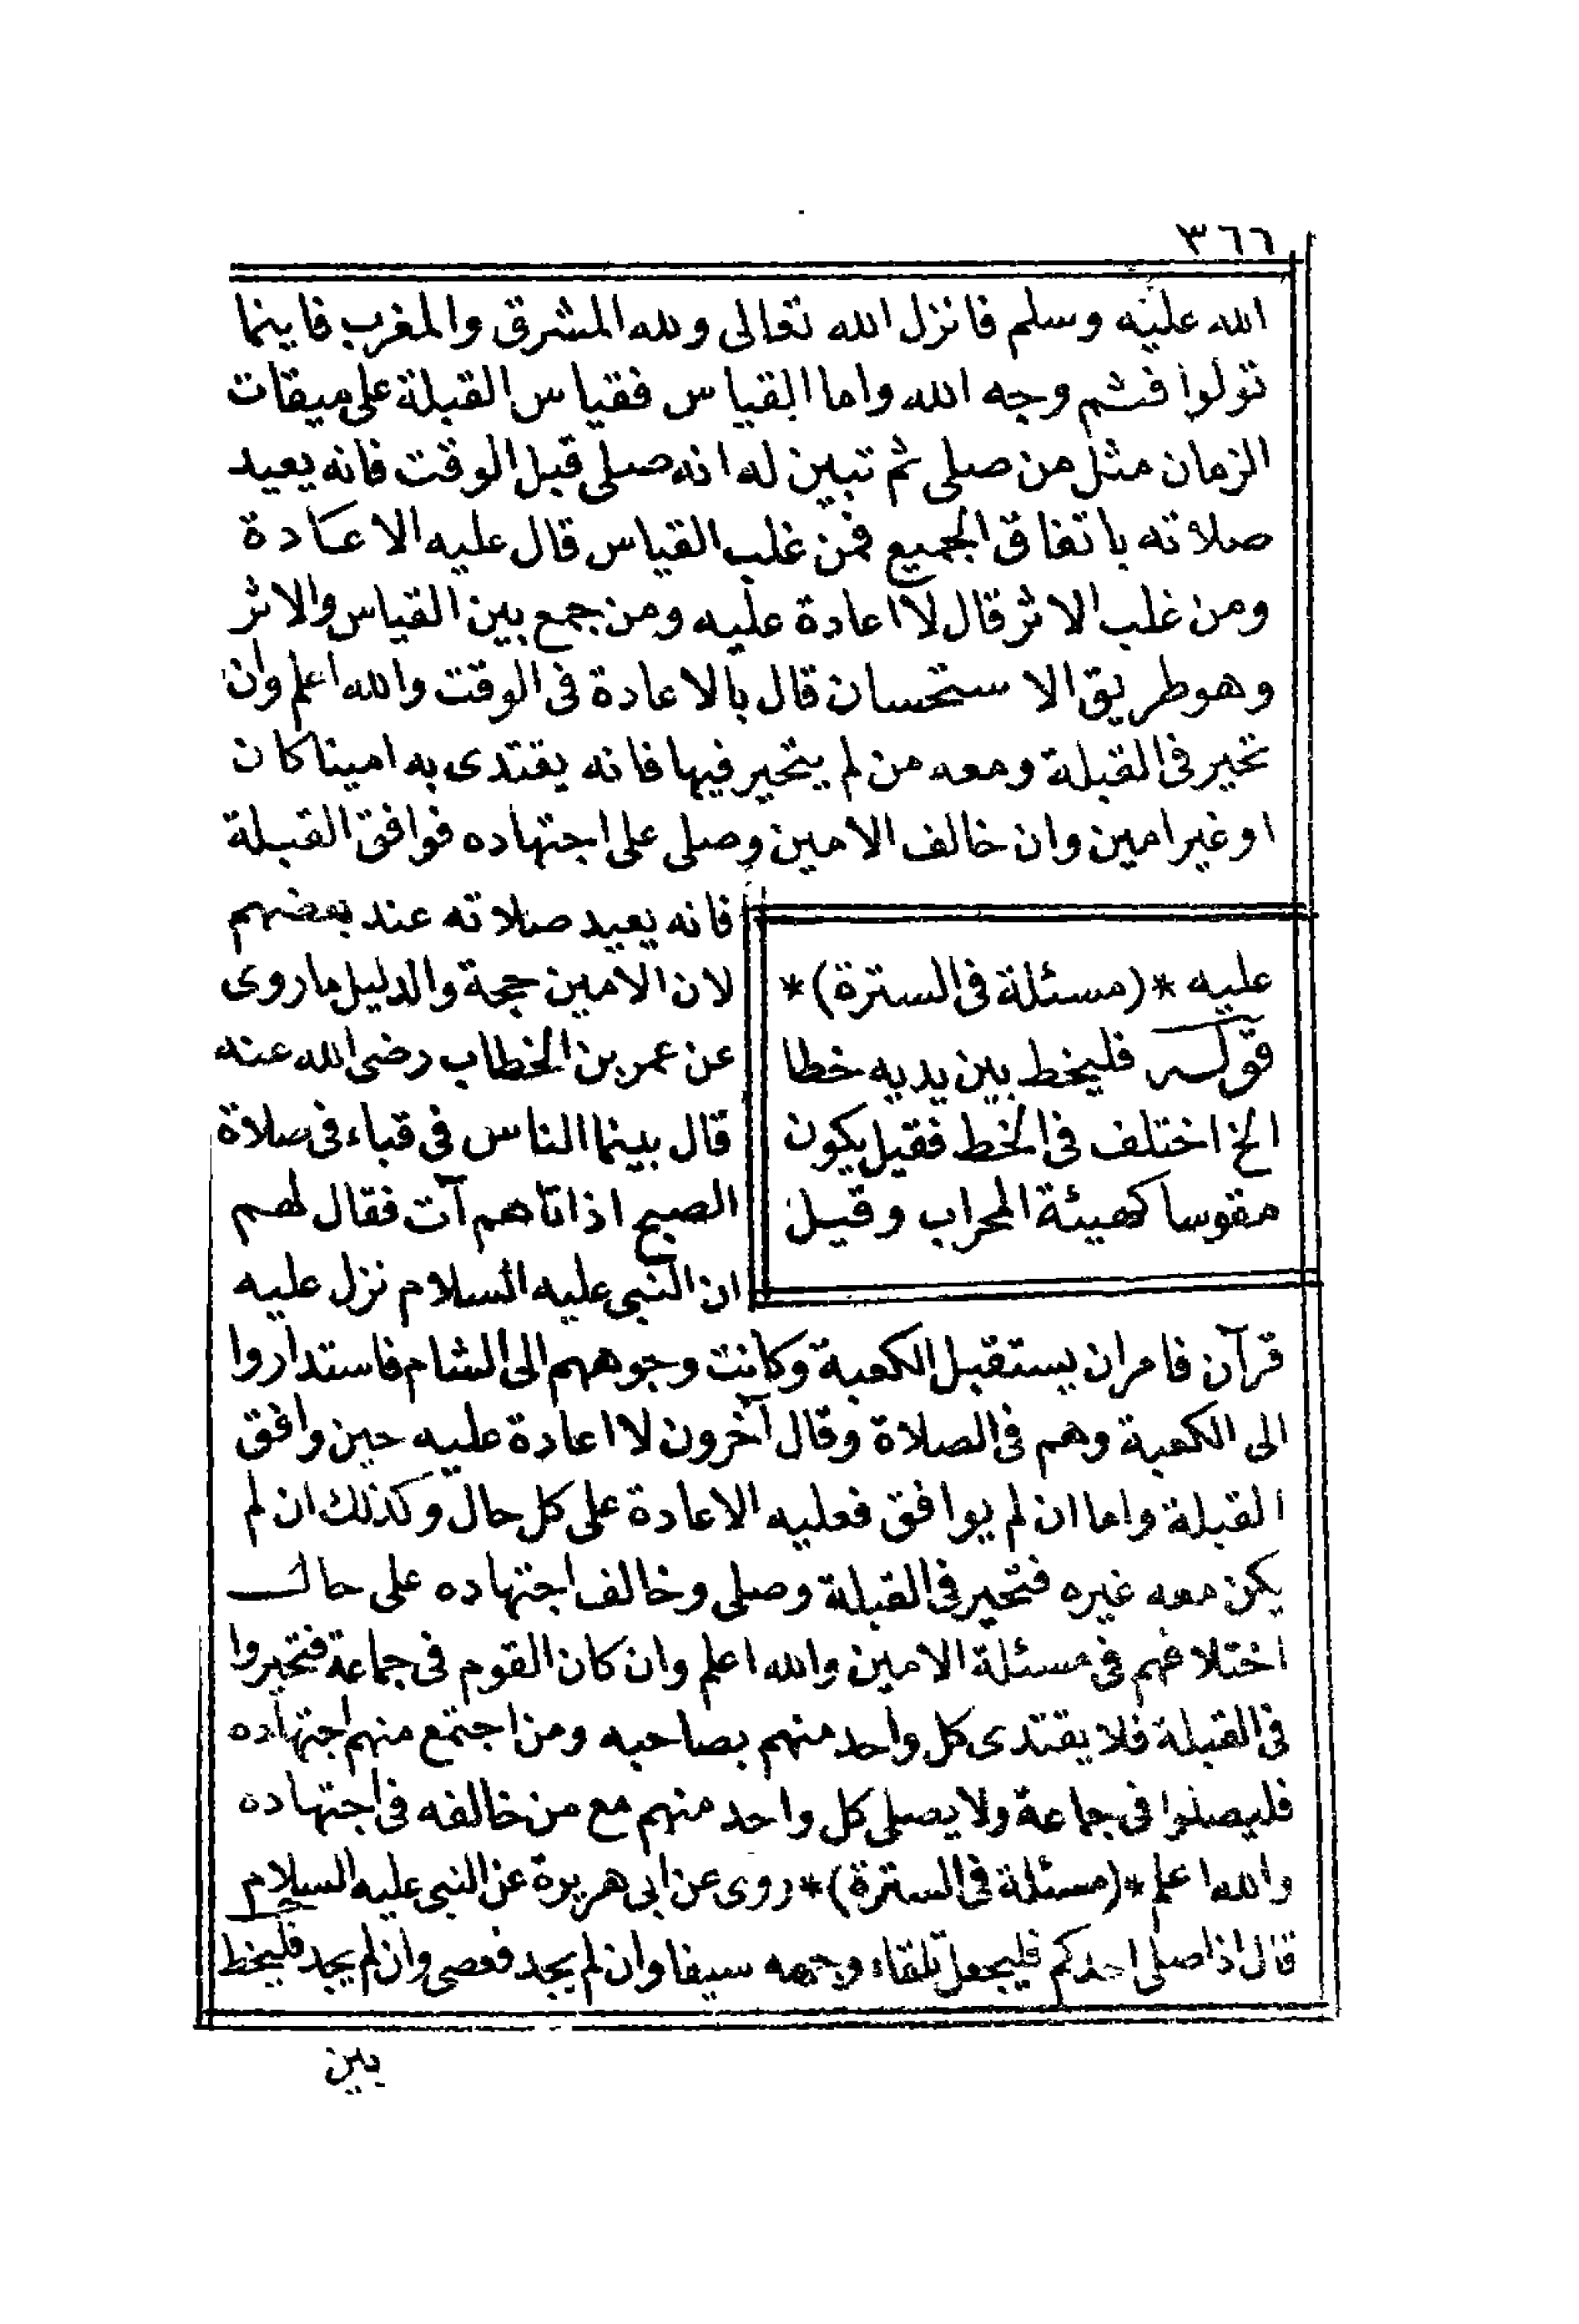 ٣٦٦
الله عليه وسلم فانزل الله تعالى ولله المشرق والمغرب فاينما
تولوا فثم وجه الله واما القياس فقياس القبلة على ميقات
الزمان مثل من صلى ثم تبين له انه صلى قبل الوقت فانه يعيد
صلاته باتفاق الجميع فمن غلب القياس قال عليه الاعادة
ومن غلب الاثر قال لا اعادة عليه ومن جمع بين القياس والاثر
وهو طريق الاستحسان قال بالاعادة فى الوقت والله اعلم وان
تحير فى القبلة ومعه من لم يتحير فيها فانه يقتدى به امينا كان
او غير امين وان خالف الامين وصلى على اجتهاده فوافق القبلة
فانه يعيد صلاته عند بعضهم
لان الامين حجة والدليل ما روى
عن عمر بن الخطاب رضى الله عنه
قال بينما الناس فى قباء فى صلاة
الصبح اذ اتاهم آت فقال لهم
ان النبى عليه السلام نزل عليه
قرآن فامر ان يستقبل الكعبة وكانت وجوههم الى الشام فاستداروا
الى الكعبة وهم فى الصلاة وقال آخرون لا اعادة عليه حين وافق
القبلة واما ان لم يوافق فعليه الاعادة على كل حال وكذلك ان لم
يكن معه غيره فتحير فى القبلة وصلى وخالف اجتهاده على حال
اختلافهم فى مسئلة الامين والله اعلم وان كان القوم فى جماعة فتحيروا
فى القبلة فلا يقتدى كل واحد منهم بصاحبه ومن اجتمع منهم اجتهاده
فليصلوا فى جماعة ولا يصلى كل واحد منهم مع من خالفه فى اجتهاده
والله اعلم *(مسئلة فى السترة)* روى عن ابى هريرة عن النبى عليه السلام
قال اذا صلى احدكم فليجعل تلقاء وجهه سيفا وان لم يجد فعصى وان لم يجد فليخط
عليه *(مسئلة فى السترة)*
قوله فليخط بين يديه خطا
الخ اختلف فى الخط فقيل يكون
مقوسا كهيئة المحراب وقيل
بين